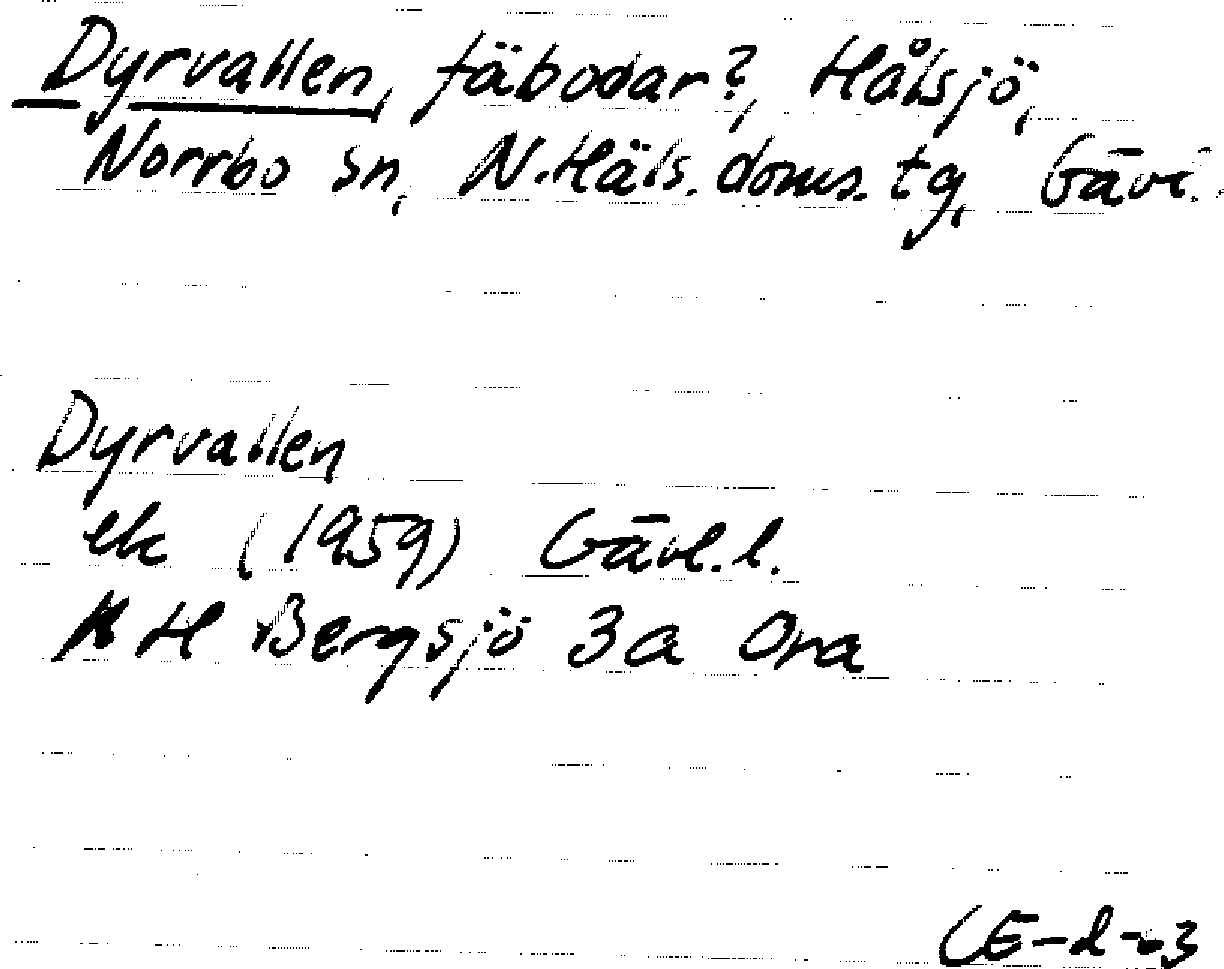 Dyrvallen, fäbodar?, Hålsjö,
Norrbo sn, N. Häls. doms. tg, Gävl.
Dyrvallen
ek (1959) Gävl. l.
H Bergsjö 3a